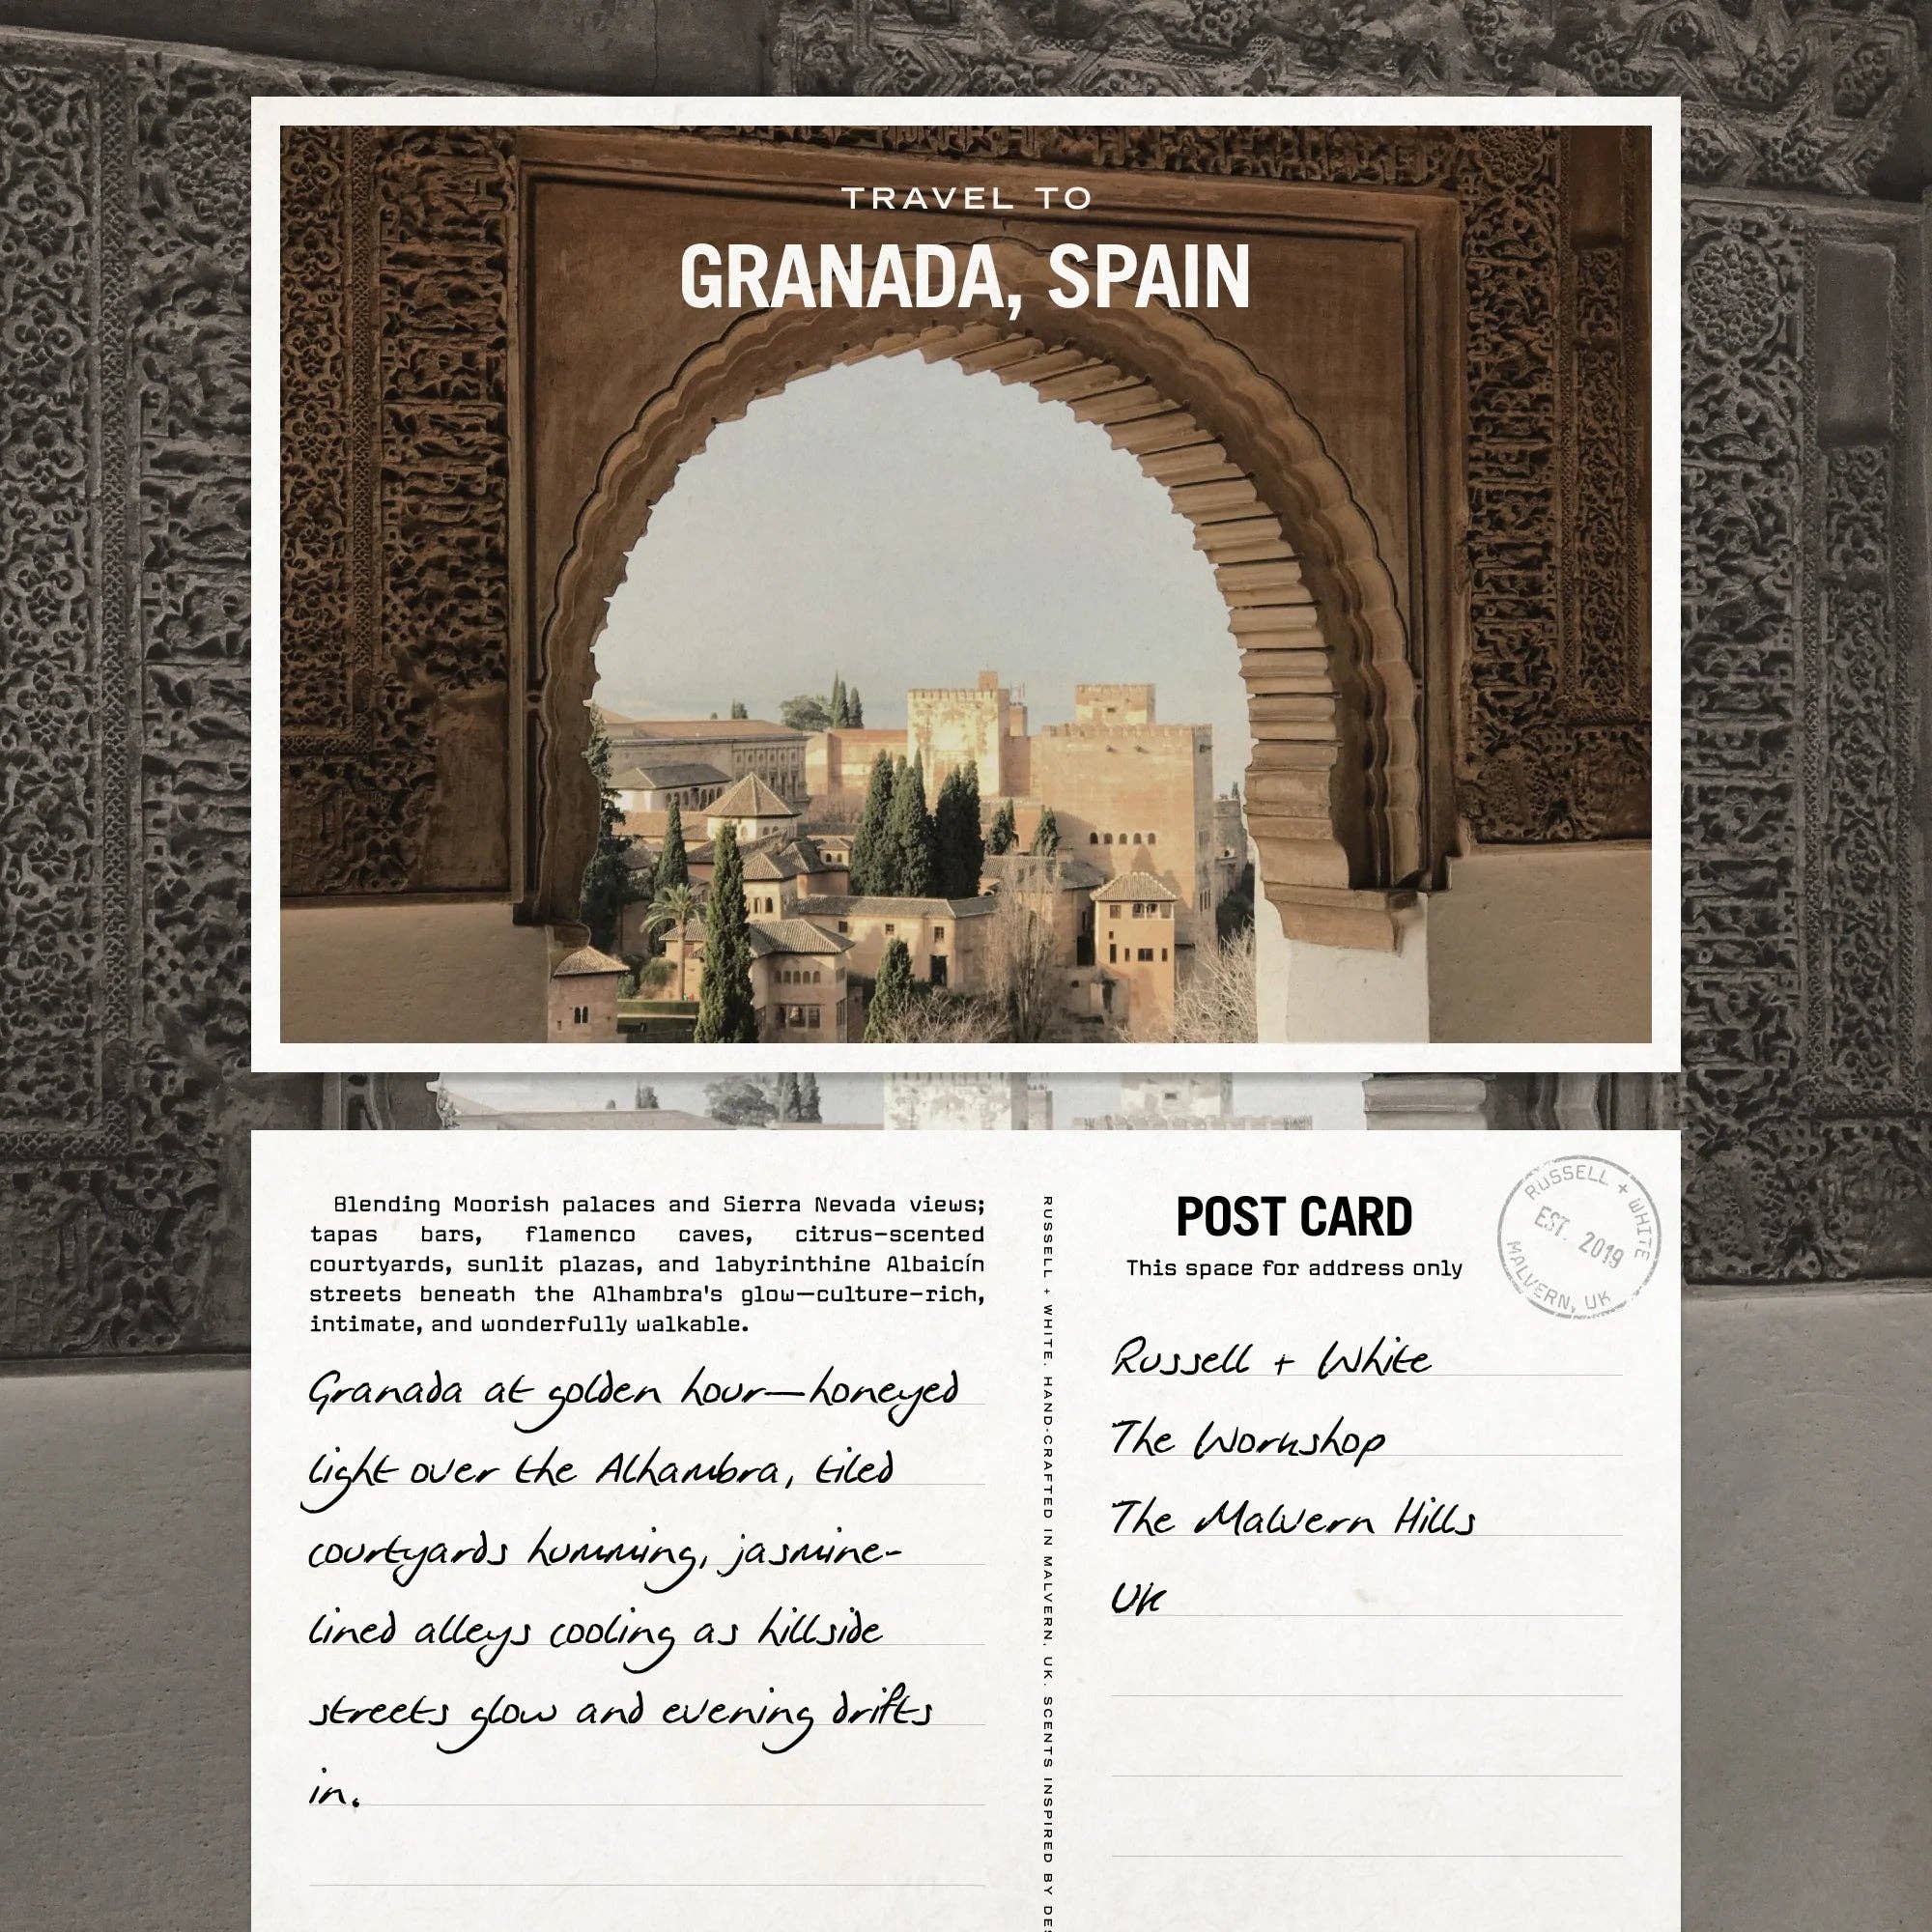 TRAVEL TO
GRANADA, SPAIN
Blending Moorish palaces and Sierra Nevada views;
tapas bars, flamenco caves, citrus-scented
courtyards, sunlit plazas, and labyrinthine Albaicín
streets beneath the Alhambra's glow—culture-rich,
intimate, and wonderfully walkable.
Granada at golden hour—honeyed
light over the Alhambra, tiled
courtyards humming, jasmine-
lined alleys cooling as hillside
streets glow and evening drifts
in.
RUSSELL + WHITE. HAND-CRAFTED IN MALVERN, UK. SCENTS INSPIRED BY
POST CARD
This space for address only
RUSSELL + WHITE
EST. 2019
MALVERN, UK
Russell + White
The Workshop
The Malvern Hills
UK